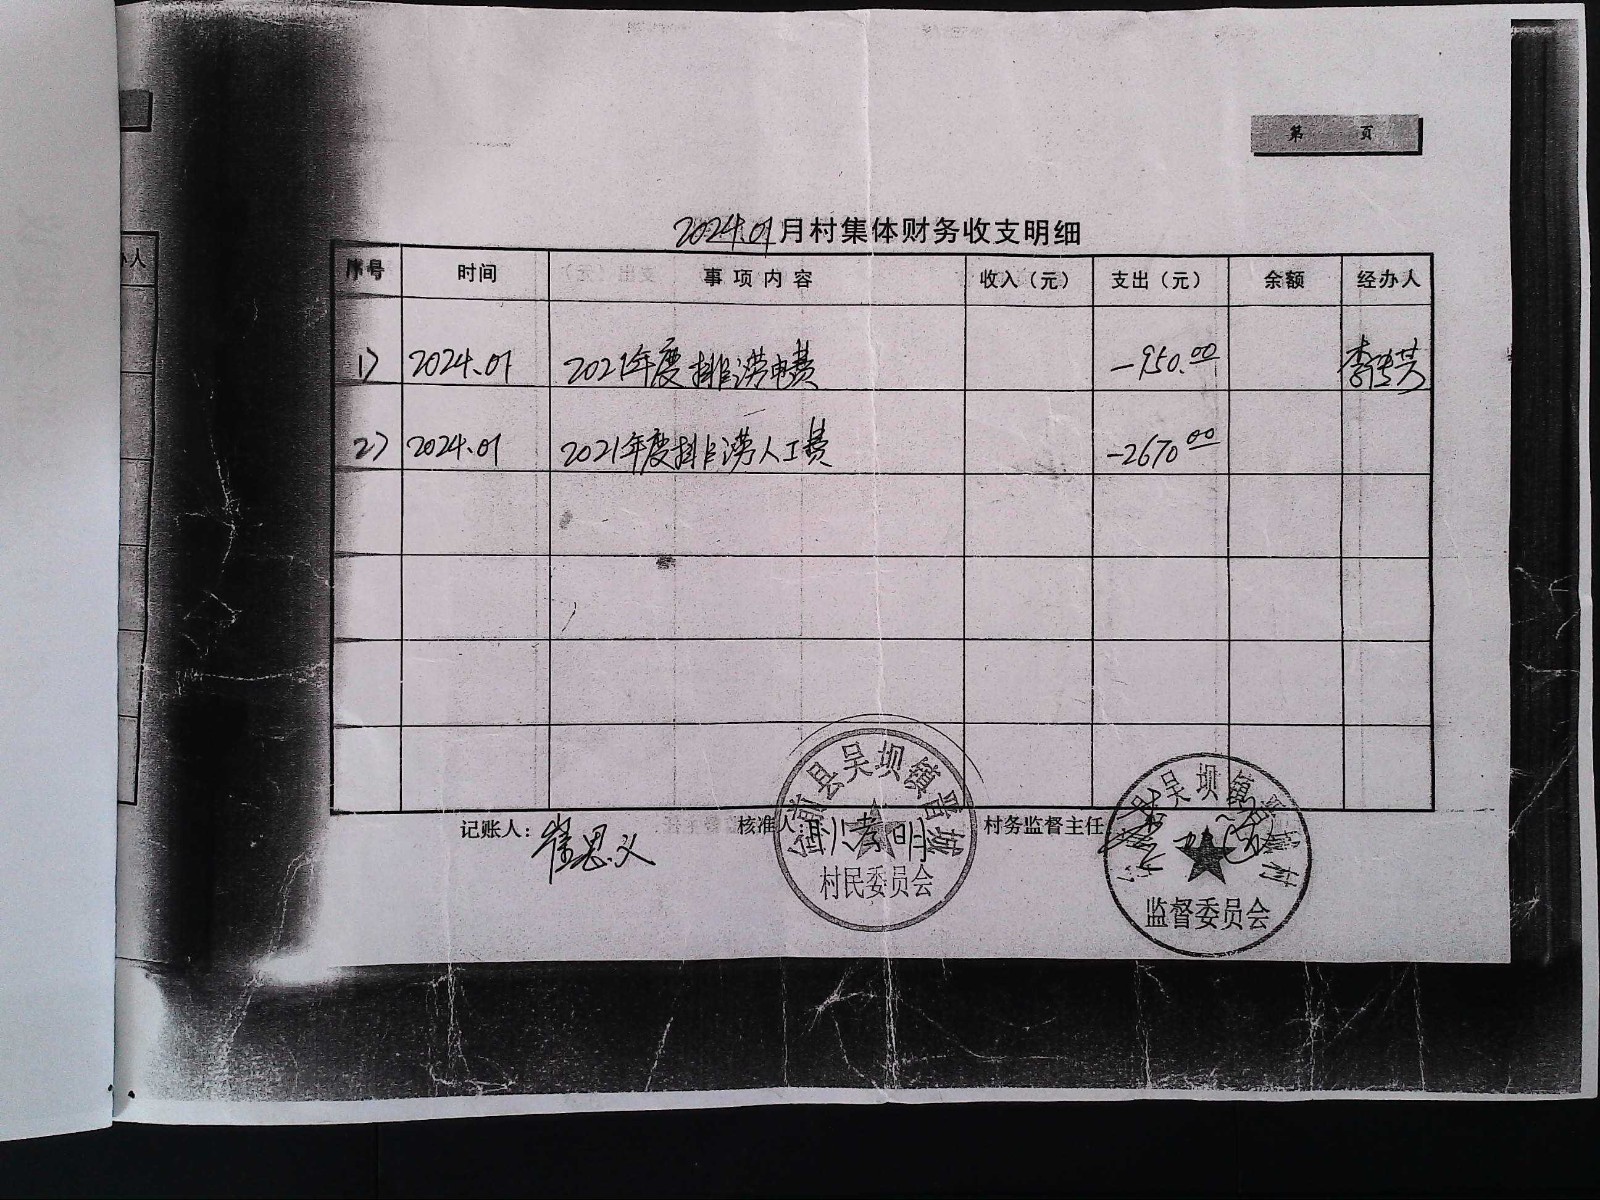 第 页
2024.01月村集体财务收支明细
序号 时间 事项内容 收入（元） 支出（元） 余额 经办人
1) 2024.01 2021年度排涝电费 -950.00 李传芡
2) 2024.01 2021年度排涝人工费 -2670.00
记账人：崔思义 核准人 孝明 村务监督主任
前县吴坝镇晋城
村民委员会
县吴坝镇晋城村
监督委员会
人